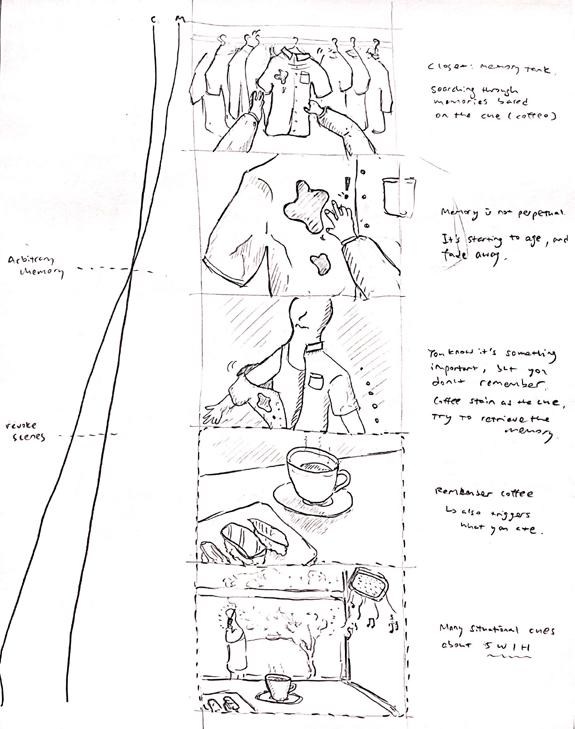 C M
Closet: memory tank.
Searching through
memories based
on the cue (coffee)
Memory is not perpetual
It's starting to age, and
fade away.
Arbitrary
memory
You know it's something
important, but you
don't remember.
Coffee stain as the cue,
Try to retrieve the
memory.
revoke
scenes
Remember coffee
↳ also triggers
what you ate.
Many situational cues
about 5W1H